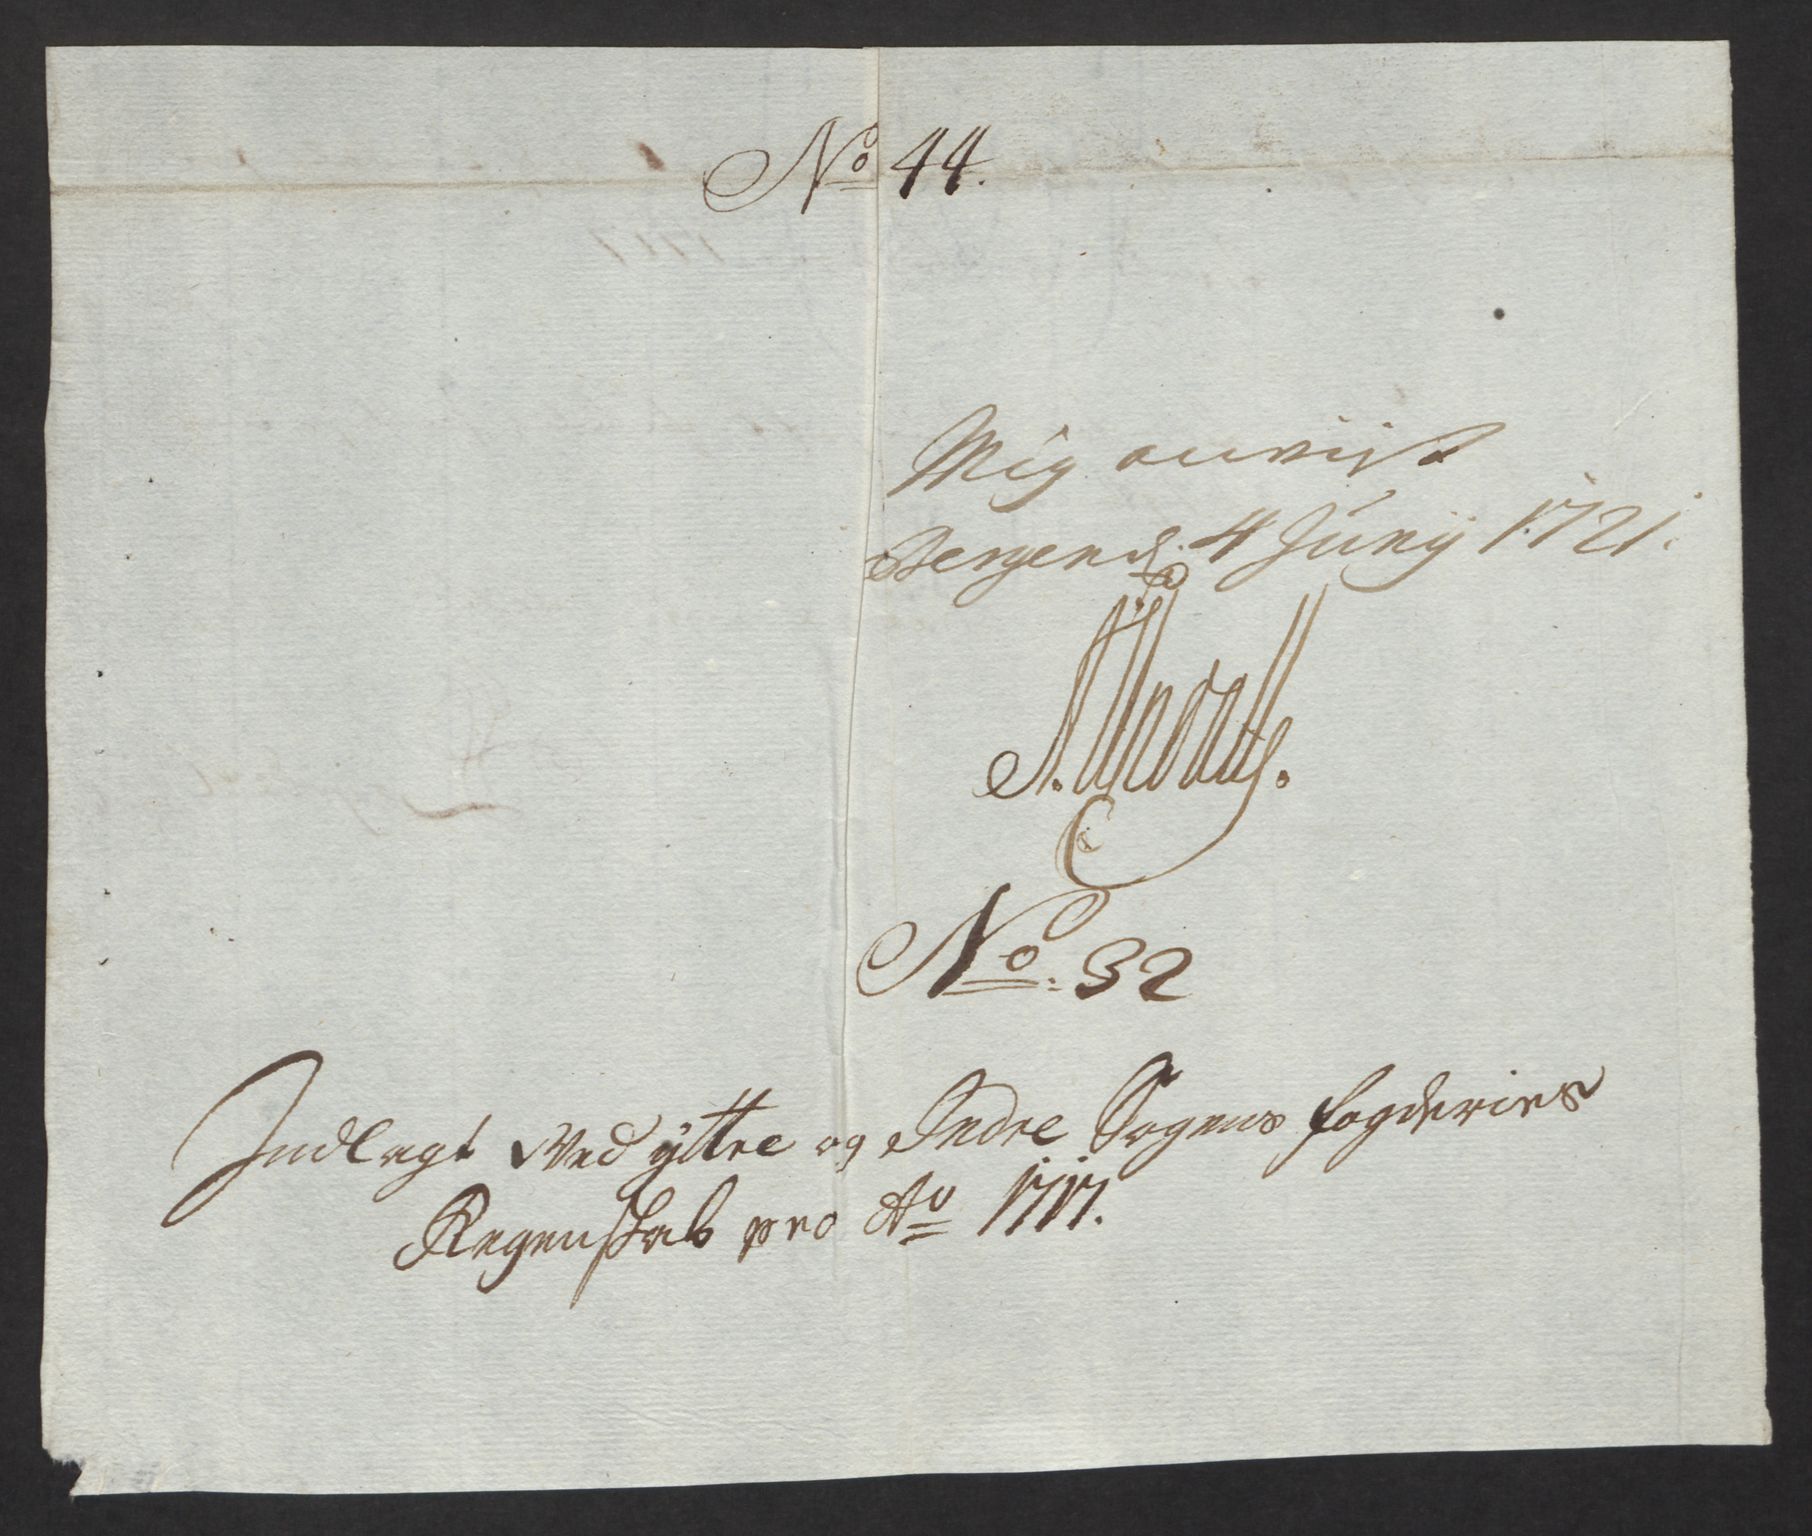 No 44.
Mig anvist
Bergen d. 4 Junÿ 1721.
No. 32
Indlagt Ved ÿttre og Indre Sogens fogderies
Regenskab pro Ao 1717.